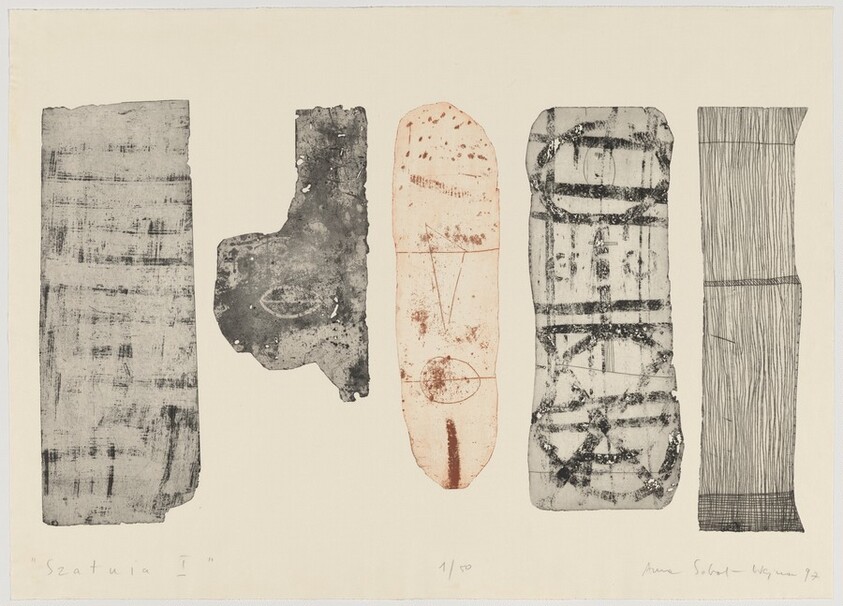 "Szatnia I" 1/50 Anna Sobol-Wejman 97